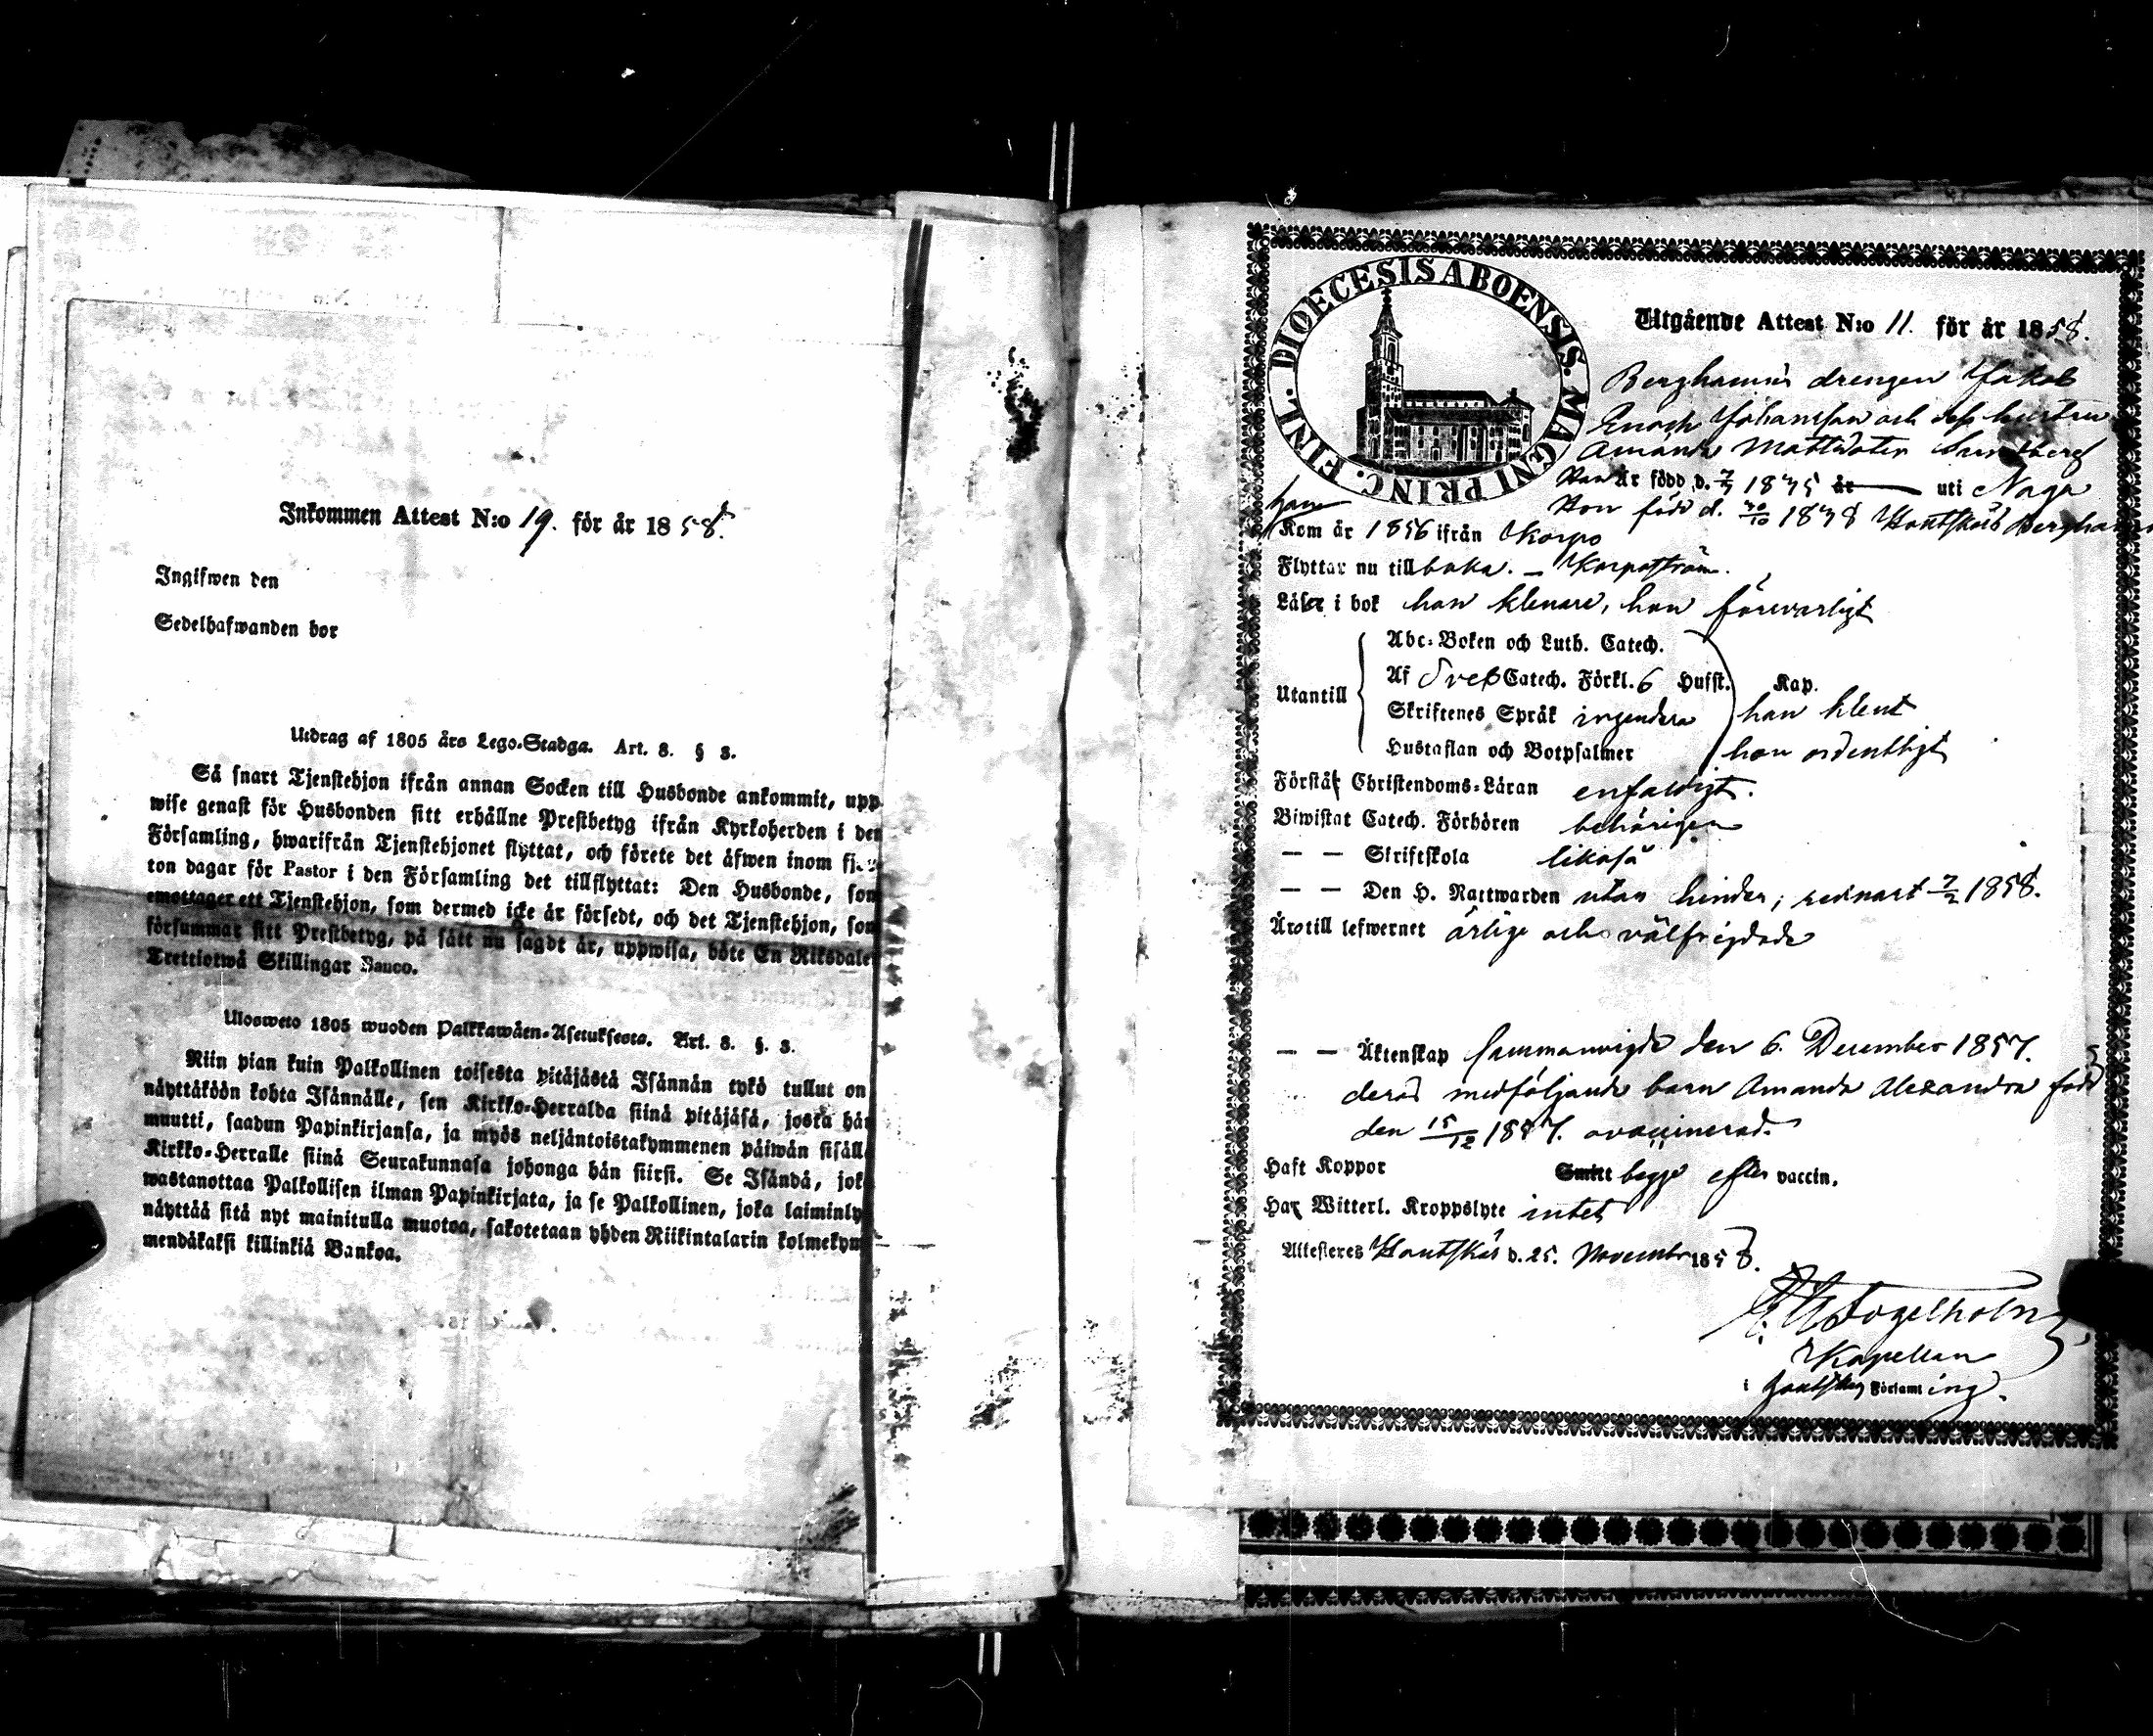 Inkommen Attest N:o 19. för år 1858.
Ingifwen den
Sedelhafwanden bor
Utdrag af 1805 års Lego-Stadga. Art. 8. § 3.
Så snart Tjenstehjon ifrån annan Socken till Husbonde ankommit, upp
wise genast för Husbonden sitt erhållne Prestbetyg ifrån Kyrkoherden i den
Församling, hwarifrån Tjenstehjonet flyttat, och förete det äfwen inom
ton dagar för Pastor i den Församling det tillflyttat: Den Husbonde, som
emottager ett Tjenstehjon, som dermed icke är försedt, och det Tjenstehjon, som
försummar sitt Prestbetyg, på sätt nu sagdt är, uppwisa, böte En Riksdale
Trettiotwå Skillingar Banco.
Ulosweto 1805 wuoden Palkkawäen-Asetuksesta. Art. 8. §. 3.
Niin pian kuin Palkollinen toisesta pitäjästä Isännän tykö tullut on
näyttäköön kohta Isännälle, sen Kirkko-Herralda siinä pitäjäsä, josta hän
muutti, saadun Papinkirjansa, ja myös neljäntoistakymmenen päiwän sisäll
Kirkko-Herralle siinä Seurakunnasa johonga hän siirsi. Se Isändä, jok
wastanottaa Palkollisen ilman Papinkirjata, ja se Palkollinen, joka laiminly
näyttää sitä nyt mainitulla muotoa, sakotetaan yhden Riikintalarin kolmekym
mendäkaksi killinkiä Bankoa.
DIOECESIS ABOENSIS. MAGNI PRINC. FINL.
Utgående Attest N:o 11. för år 1858.
Berghamns drengen Jakob
Enoch Johansson och dess hustru
Amanda Mattsdoter Sundberg
Han Är född d. 7/7 1835 år uti Nagu
Hon född d. 30/10 1838 Houtskärs Bergham
han
Kom år 1856 ifrån Korpo
Flyttar nu tillbaka. – Korpoström.
Läser i bok han klenare, hon försvarligt
Utantill
Abc-Boken och Luth. Catech.
Af Sveb Catech. Förkl. 6 Hufst. Kap.
Skriftenes Språk ingendera han klent
Hustaflan och Botpsalmer hon ordentligt
Förstår Christendoms-Läran enfaldigt.
Biwistat Catech. Förhören behörigen
— — Skriftskola likaså
— — Den H. Nattwarden utan hinder, sednast 7/2 1858.
Äro till lefwernet ärlige och välfrejdade
— — Äktenskap sammanvigde den 6. December 1857.
deras medföljande barn Amanda Alexandra född
den 15/12 1857. ovaccinerad.
Haft Koppor Smitt begge efter vaccin.
Har Witterl. Kroppslyte intet
Attesteres Houtskär d. 25. November 1858.
Fogelholm
Kapellan
i Houtskär Församling.